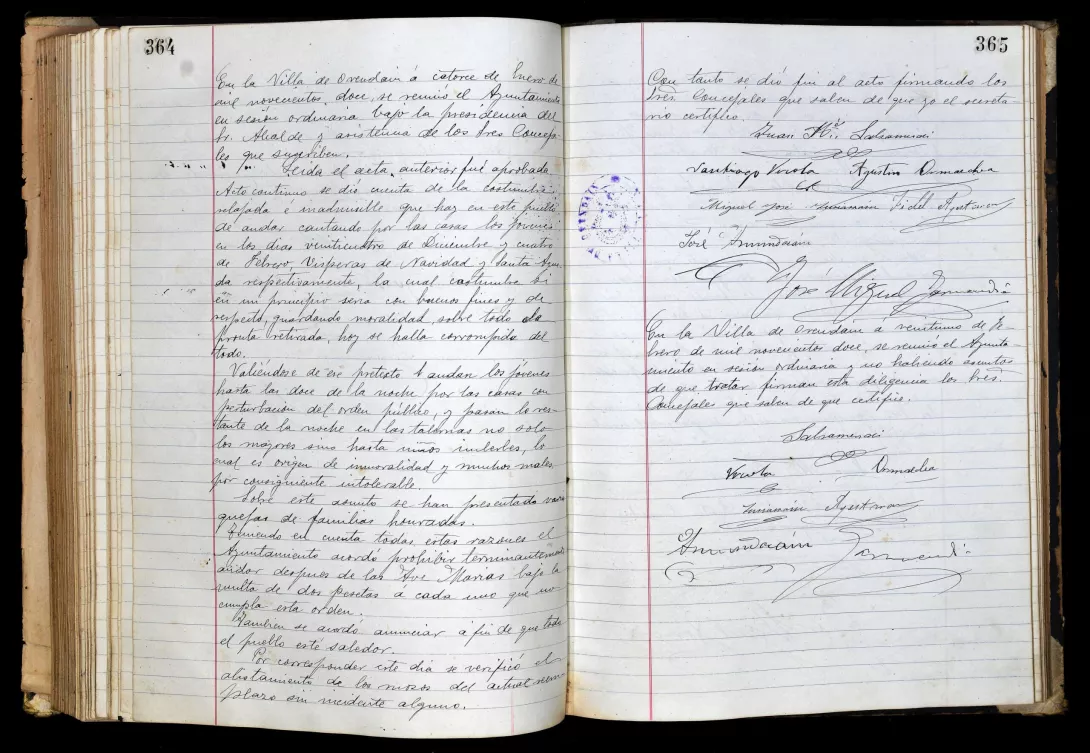 364
En la Villa de Orendain á catorce de Enero de
mil novecientos doce, se reunió el Ayuntamiento
en sesión ordinaria bajo la presidencia del
Sr. Alcalde y asistencia de los tres Conceja-
les que suscriben.
Leida el acta anterior fué aprobada
Acto continuo se dió cuenta de la costumbre
relajada é inadmisible que hay en este pueblo
de andar cantando por las casas los jóvenes
en los dias veinticuatro de Diciembre y cuatro
de Febrero, Visperas de Navidad y Santa Ague-
da respectivamente, la cual costumbre si
en un principio seria con buenos fines y de
respeto, guardando moralidad, sobre todo la
pronta retirada, hoy se halla corrompida del
todo.
Valiéndose de ese pretexto andan los jóvenes
hasta las doce de la noche por las casas con
perturbación del orden público, y pasan lo res-
tante de la noche en las tabernas no solo
los mayores sino hasta niños imberbes, lo
cual es origen de inmoralidad y muchos males,
por consiguiente intolerable.
Sobre este asunto se han presentado varias
quejas de familias honradas.
Teniendo en cuenta todas estas razones el
Ayuntamiento acordó prohibir terminantemente
andar despues de las Ave Marias bajo la
multa de dos pesetas á cada uno que no
cumpla esta orden.
Tambien se acordó anunciar á fin de que todo
el pueblo esté sabedor.
Por corresponder este dia se verificó el
alistamiento de los mozos del actual reem-
plazo sin incidente alguno.
365
Con tanto se dió fin al acto firmando los
tres Concejales que saben de que yo el secreta-
rio certifico.
Juan Mª. Salsamendi
Santiago Agustin
Miguel José Fidel
José
José Miguel
En la Villa de Orendain a veintiuno de Fe-
brero de mil novecientos doce, se reunió el Ayunta-
miento en sesión ordinaria y no habiendo asuntos
de que tratar firman esta diligencia los tres
Concejales que saben de que certifico.
Salsamendi